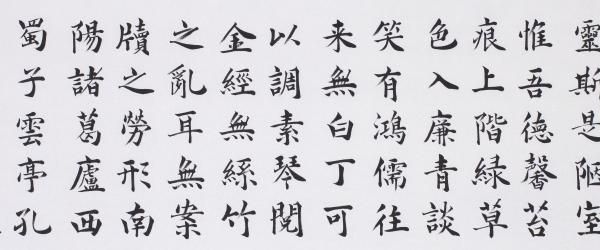 靈斯是陋室
惟吾德馨苔
痕上階緑草
色入廉青談
笑有鴻儒往
来無白丁可
以調素琴閱
金經無絲竹
之亂耳無案
牘之勞形南
陽諸葛廬西
蜀子雲亭孔